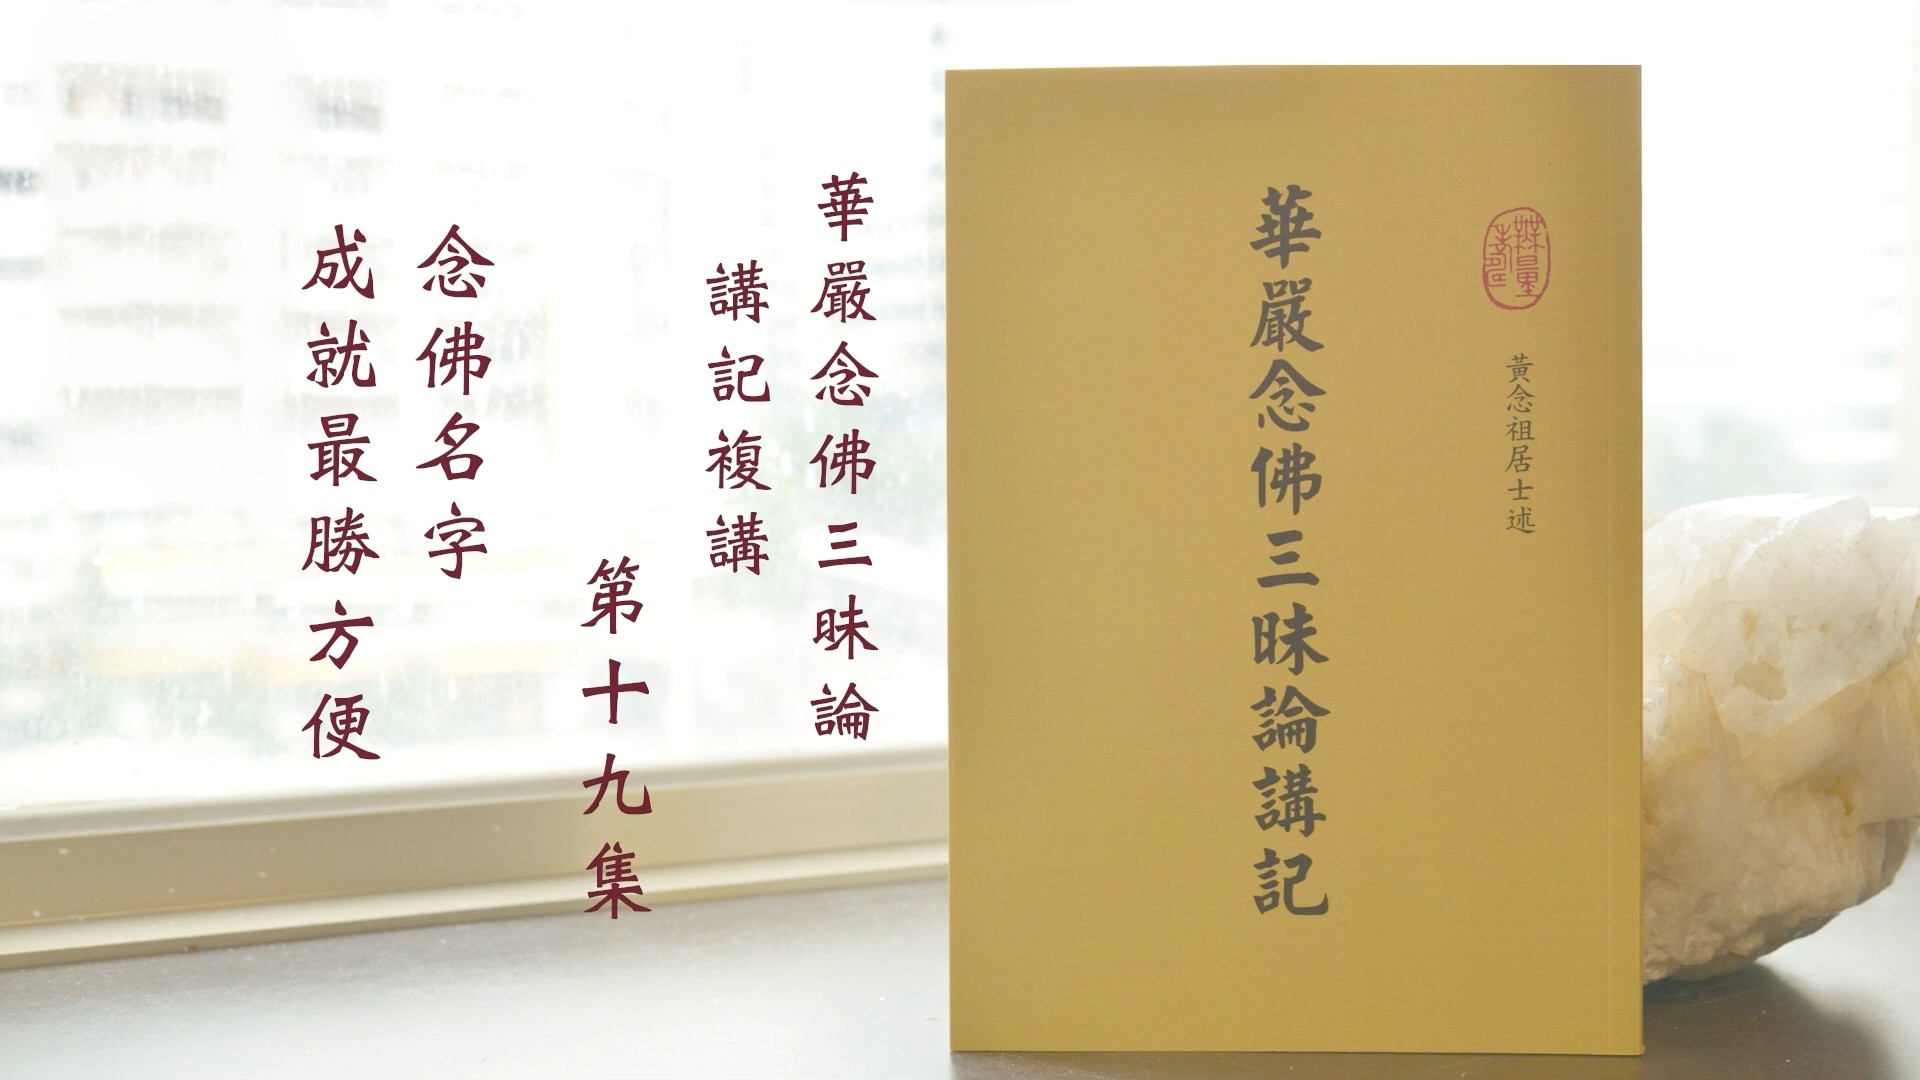 華嚴念佛三昧論
講記複講
第十九集
念佛名字
成就最勝方便
黃念祖居士述
華嚴念佛三昧論講記